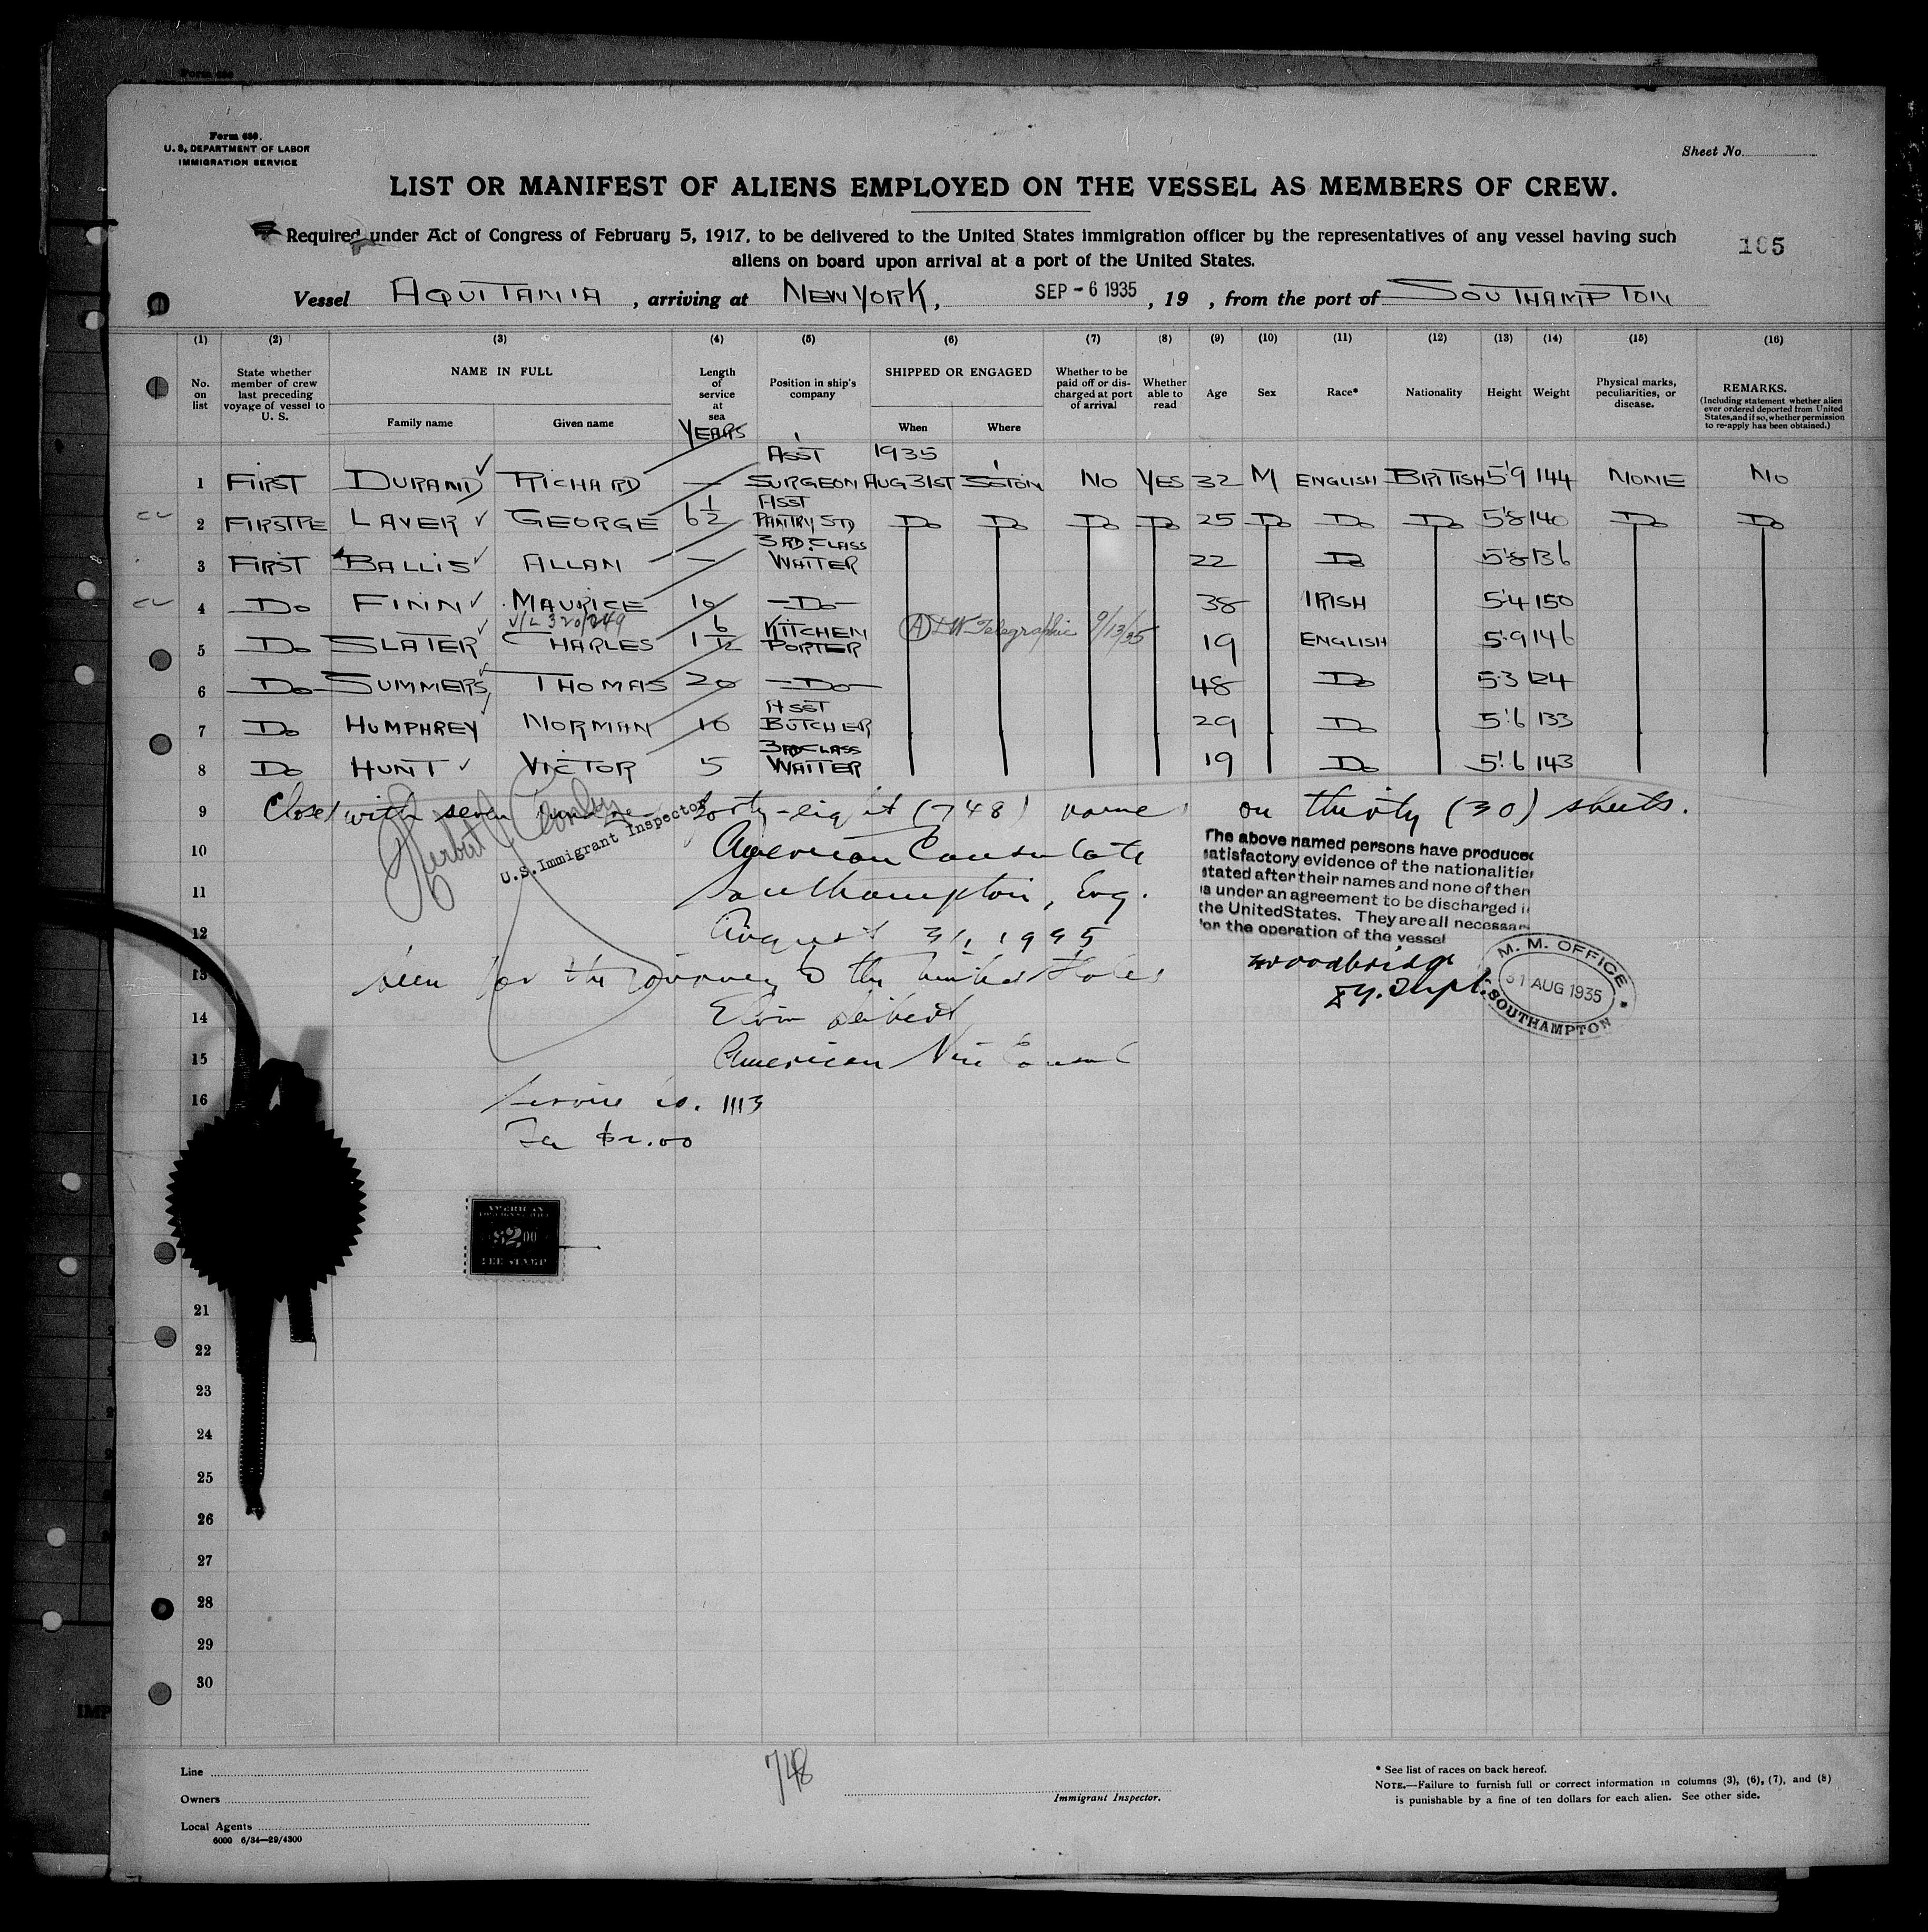 Form 689.
U. S. DEPARTMENT OF LABOR
IMMIGRATION SERVICE
Sheet No.
LIST OR MANIFEST OF ALIENS EMPLOYED ON THE VESSEL AS MEMBERS OF CREW.
Required under Act of Congress of February 5, 1917, to be delivered to the United States immigration officer by the representatives of any vessel having such
aliens on board upon arrival at a port of the United States.
165
Vessel AQUITANIA, arriving at NEW YORK, SEP - 6 1935, 19 , from the port of SOUTHAMPTON
(1) (2) (3) (4) (5) (6) (7) (8) (9) (10) (11) (12) (13) (14) (15) (16)
No. on list
State whether member of crew last preceding voyage of vessel to U. S.
NAME IN FULL
Family name
Given name
Length of service at sea
YEARS
Position in ship's company
SHIPPED OR ENGAGED
When
Where
Whether to be paid off or discharged at port of arrival
Whether able to read
Age
Sex
Race*
Nationality
Height
Weight
Physical marks, peculiarities, or disease.
REMARKS.
(Including statement whether alien ever ordered deported from United States, and if so, whether permission to re-apply has been obtained.)
1 FIRST DURAND RICHARD — ASST SURGEON 1935 AUG 31ST S'OTON NO YES 32 M ENGLISH BRITISH 5'9 144 NONE NO
2 FIRSTPE LAVER GEORGE 6½ ASST PANTRY STD DO DO DO DO 25 DO DO DO 5'8 140 DO DO
3 FIRST BALLIS ALLAN — 3RD CLASS WAITER 22 DO 5'8 136
4 DO FINN MAURICE 10 —DO— 38 IRISH 5'4 150
V/L 320/249
5 DO SLATER CHARLES 1 6/12 KITCHEN PORTER Telegraphic 9/13/35 19 ENGLISH 5'9 146
6 DO SUMMERS THOMAS 20 —DO— 48 DO 5'3 124
7 DO HUMPHREY NORMAN 10 ASST BUTCHER 29 DO 5'6 133
8 DO HUNT VICTOR 5 3RD CLASS WAITER 19 DO 5'6 143
9 Closed with seven hundred forty-eight (748) names on thirty (30) sheets.
U.S. Immigrant Inspector
10 American Consulate
11 Southampton, Eng.
12 August 31, 1935
13 Seen for the journey to the United States
14
15 American Vice Consul
16 Service No. 1113
Fee $2.00
The above named persons have produced
satisfactory evidence of the nationalities
stated after their names and none of them
is under an agreement to be discharged in
the United States. They are all necessary
for the operation of the vessel
Woodbridge
M. M. OFFICE
31 AUG 1935
SOUTHAMPTON
AMERICAN
$2.00
FEE STAMP
21
22
23
24
25
26
27
28
29
30
Line
Owners
Local Agents
6000 6/34—29/4300
748
Immigrant Inspector.
* See list of races on back hereof.
NOTE.—Failure to furnish full or correct information in columns (3), (6), (7), and (8)
is punishable by a fine of ten dollars for each alien. See other side.